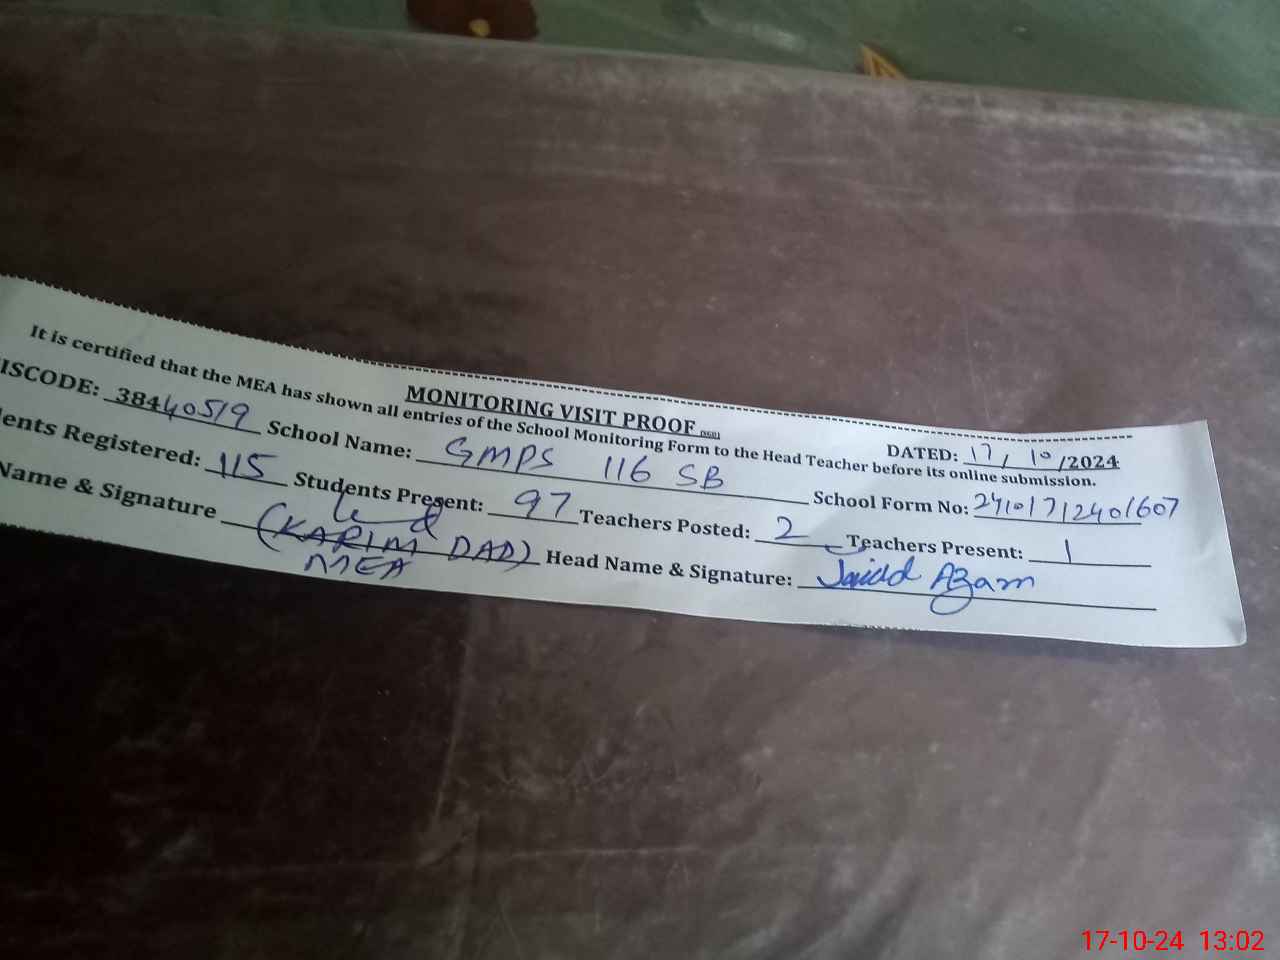 MONITORING VISIT PROOF (SGD)
DATED: 17/10/2024
It is certified that the MEA has shown all entries of the School Monitoring Form to the Head Teacher before its online submission.
ISCODE: 38440519 School Name: GMPS 116 SB School Form No: 24101712401607
ents Registered: 115 Students Present: 97 Teachers Posted: 2 Teachers Present: 1
Name & Signature (KARIM DAD) Head Name & Signature: Azam
MEA
17-10-24 13:02